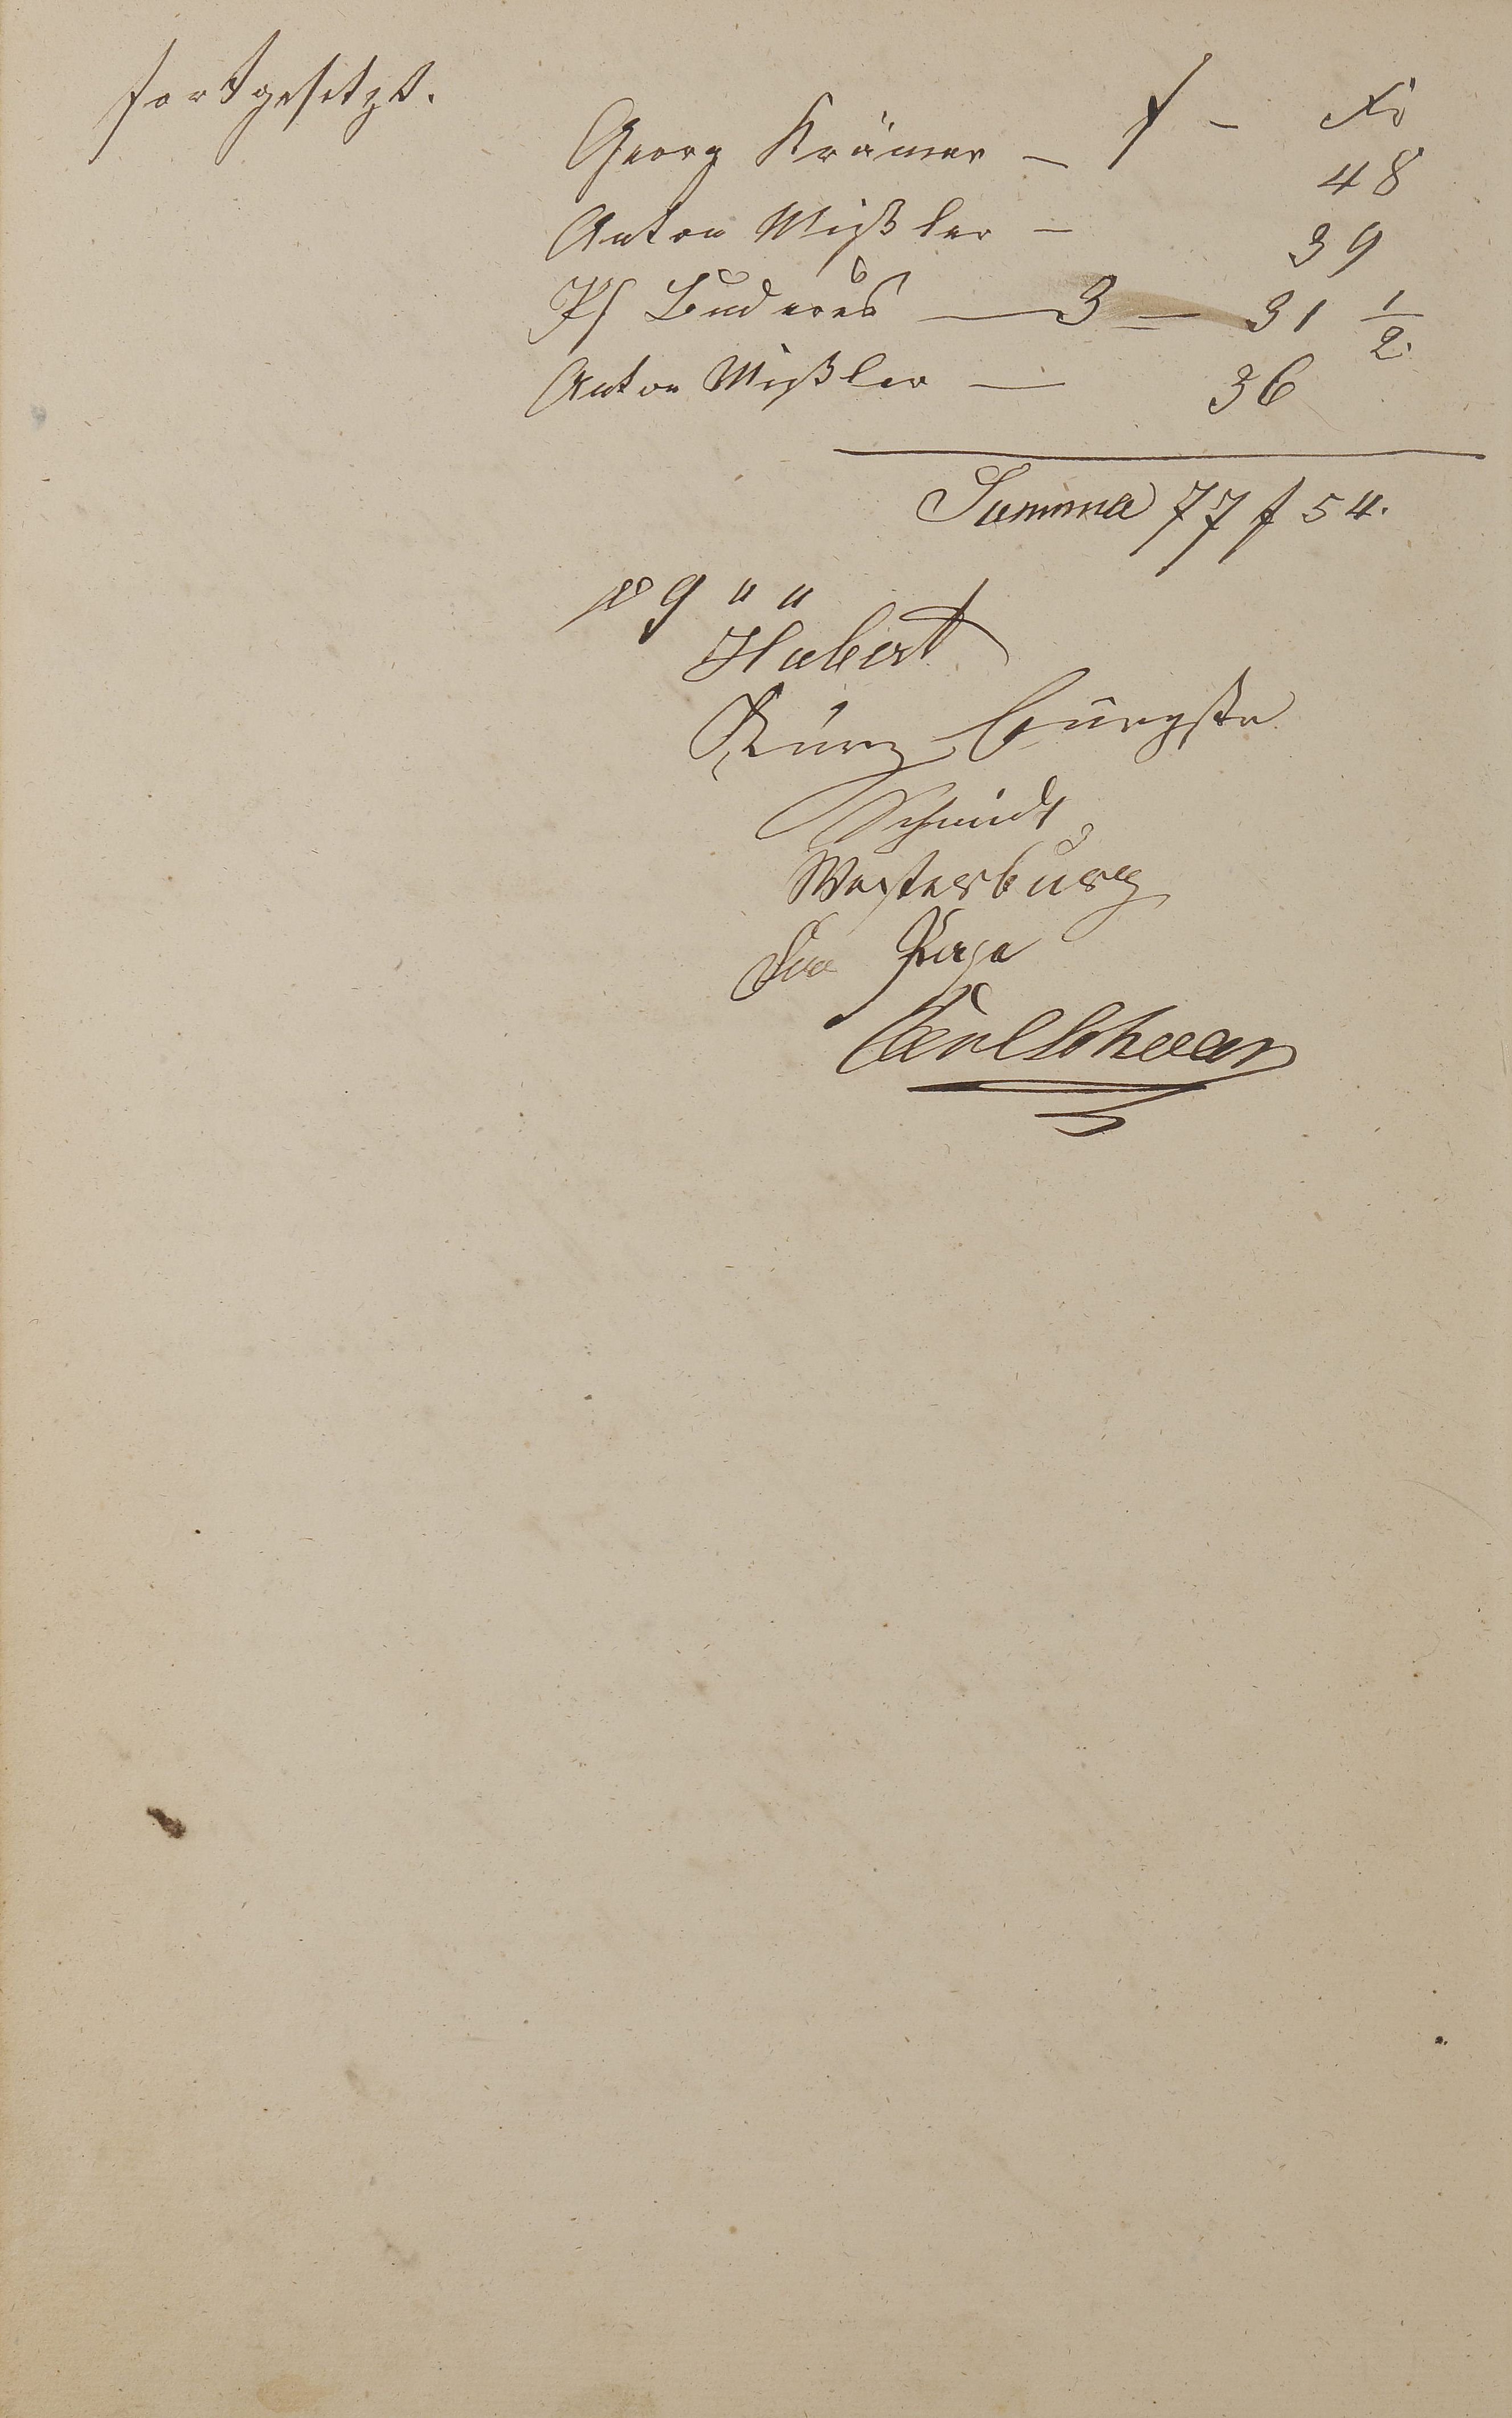 fortgesetzt.
f – Xr
Georg Krämer – 48
Anton Mißler – 39
Ph Buderus — 3 — 31 1/2
Anton Mißler — 36
Summa 77 f 54.
v g u u
Hubert
Kunz Bürgstr
Schmidt
Westerburg
Carl Schaar